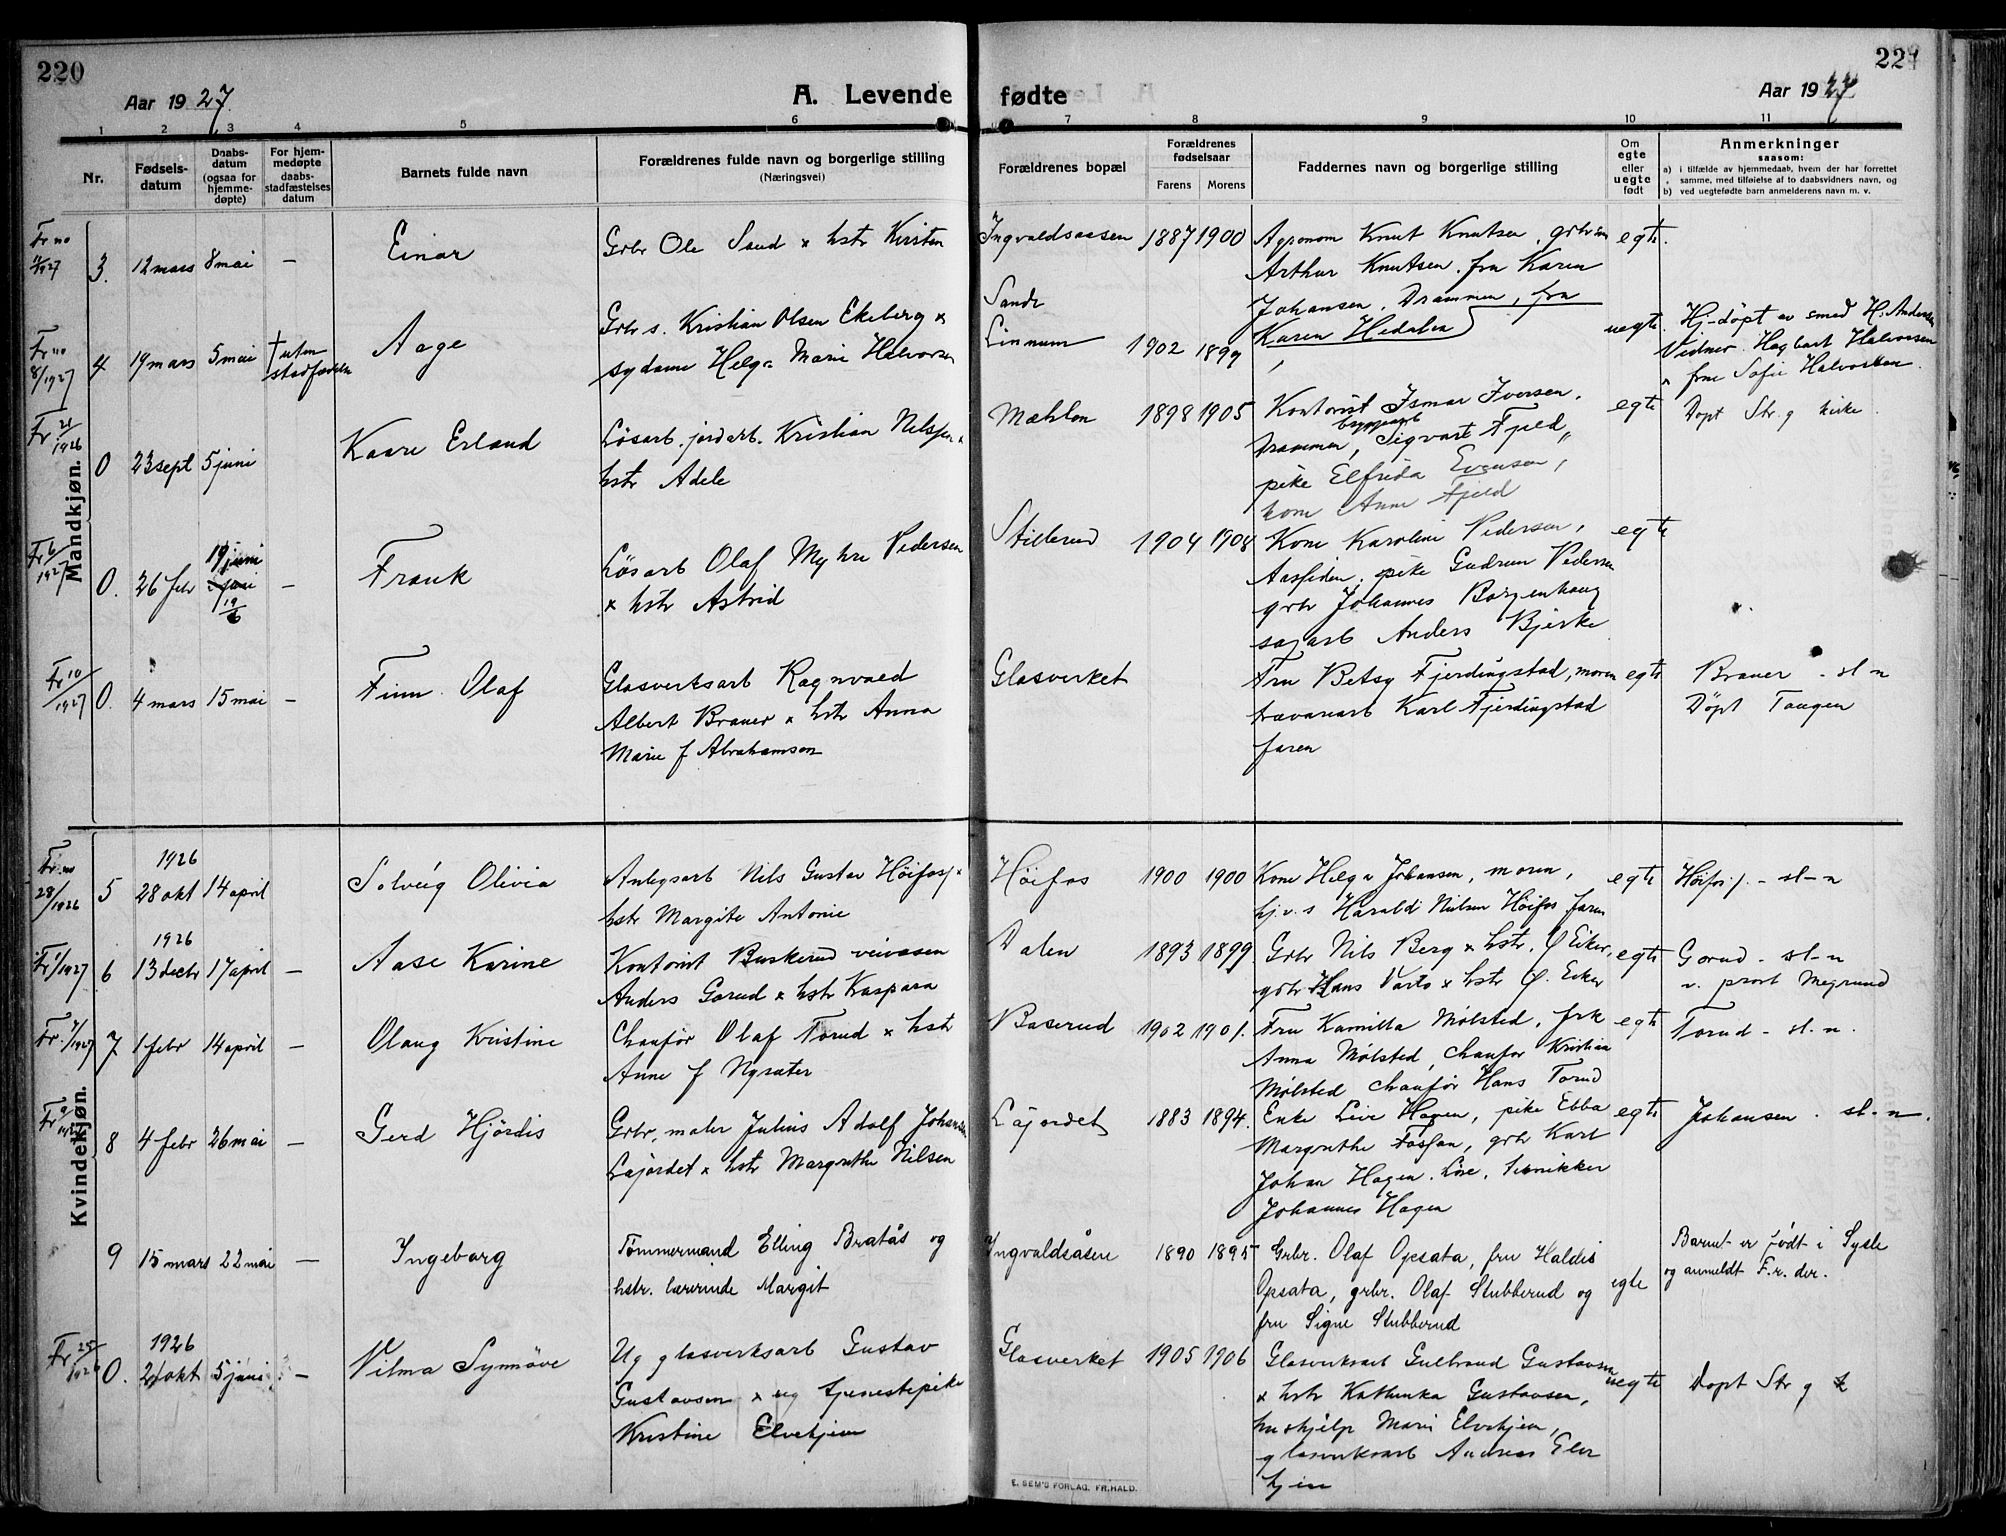 220
Aar 1927.
A. Levende
fødte
Aar 1927
221
1 2 3 4 5 6 7 8 9 10 11
Nr.
Fødsels-
datum
Daabs-
datum
(ogsaa for
hjemme-
døpte)
For hjem-
medøpte
daabs-
stadfæstelses
datum
Barnets fulde navn
Forældrenes fulde navn og borgerlige stilling
(Næringsvei)
Forældrenes bopæl
Forældrenes
fødselsaar
Farens Morens
Faddernes navn og borgerlige stilling
Om
egte
eller
uegte
født
Anmerkninger
saasom:
a) i tilfælde av hjemmedaab, hvem der har forrettet
samme, med tilføielse af to daabsvidners navn, og
b) ved uegtefødte barn anmelderens navn m. v.
Mandkjøn.
Fr no
11/1927
3. 12 mars 8 mai –
Einar
Grbr Ole Sand x hstr Kirsten
Ingvaldsaasen 1887 1900
Agronom Knut Knutsen, grbr
Arthur Knutsen, fru Karen
Johansen, Drammen, fru
Karen Hedalen
egte.
Fr no
8/1927
4 19 mars 5 mai † uten
Aage
Grbr s. Kristian Olsen Ekeberg x
sydame Helga Marie Halvorsen
Sande
Linnum 1902 1899
uegte.
Hj-døpt av smed H. Andersen
Vidner. Hagbart Halvorsen
x frue Sofie Halvorsen.
Fr 21
1926
0 23 sept 5 juni
Kaare Erland
Løsarb. jordarb. Kristian Nilsen x
hstr Adele
Mæhlen 1898 1905
Kontorist Ismar Iversen,
Drammen, Sigvart Fjeld,
pike Elfrida Evensen,
kone Anne Fjeld
egte
Døpt Str. g kirke.
Fr 6/1927
0. 26 febr 19 juni
19/6 –
Frank
Løsarb Olaf Myhre Pedersen
x hstr Astrid
Stillerud 1904 1908
Kone Karoline Pedersen,
Aassiden, pike Gudrun Pedersen
grbr Johannes Borgenhaug
sagarb Anders Bjerke
egte
Fr 10/1927
0. 4 mars 15 mai –
Finn Olaf
Glasverksarb Ragnvald
Albert Brauer x hstr Anna
Marie f Abrahamsen
Glasverket
Fru Betsy Fjerdingstad, moren
trævarearb Karl Fjerdingstad
faren
egte
Brauer – sl-n
Døpt Tangen
Kvindekjøn.
Fr no
28/1926
1926
5 28 okt 14 april
Solveig Olivia
Anlegsarb Nils Gustav Høifos x
hstr Margite Antonie
Høifos 1900 1900
Kone Helga Johansen, moren,
hj.v.s Harald Nilsen Høifos, faren
egte
Høifos – sl-n
Fr 1/1927
1926
6 13 decbr 17 april –
Aase Karine
Kontorist Buskerud veivæsen
Anders Gorud x hstr Kaspara
Dalen 1893 1899
Grbr Nils Berg x hstr, Ø. Eiker,
grbr Hans Varlo x hstr Ø. Eiker
egte
Gorud – sl-n
v. prost Megrund
Fr. 7/1927
7 1 febr 14 april –
Olaug Kristine
Chaufør Olaf Torud x hstr
Anne f Nysæter
Baserud 1902 1901.
Fru Kamilla Mølsted, frk
Anna Mølsted, chaufør Kristian
Mølsted chaufør Hans Torud
egte
Torud – sl-n.
Fr 9/1927
8 4 febr 26 mai –
Gerd Hjørdis
Grbr, maler Julius Adolf Johansen
Løjordet x hstr Margrethe Nilsen
Løjordet 1883 1894.
Enke Live Hagen, pike Ebba
Margrethe Fossan, grbr Karl
Johan Hagen, Løse, snikker
Johannes Hagen
egte
Johansen – sl-n.
9 15 mars 22 mai –
Ingeborg
Tømmermand Elling Bratås og
hstr. lærerinde Margit
Ingvaldsåsen 1890 1895
Grbr. Olaf Opsata, fru Haldis
Opsata, grbr. Olaf Stubberud og
fru Signe Stubberud
egte
Barnet er født i Sysle
og anmeldt F.r. der.
Fr 25/1926
1926
0. 21 okt 5 juni –
Vilma Synnøve
Ug glasverksarb Gustav
Gustavsen x ug tjenestepike
Kristine Elvehjem
Glasverket 1905 1906
Glasverksarb Gulbrand Gustavsen
x hstr Kathinka Gustavsen,
hushjelp Marie Elvehjem,
glasverksarb Andreas Elve
hjem
uegte
Døpt Str g k
E. SEM'S FORLAG. FR.HALD.